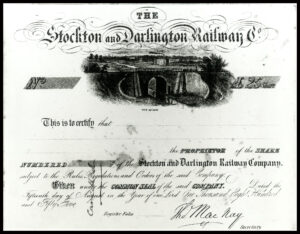 THE
Stockton and Darlington Railway Co.
No
£ 25
This is to certify that
is the PROPRIETOR OF THE SHARE
NUMBERED of the Stockton and Darlington Railway Company,
subject to the Rules, Regulations and Orders of the said Company;
Given under the COMMON SEAL of the said COMPANY, Dated the
Fifteenth day of August in the Year of our Lord One Thousand Eight Hundred
and Fifty
Thos MacNay